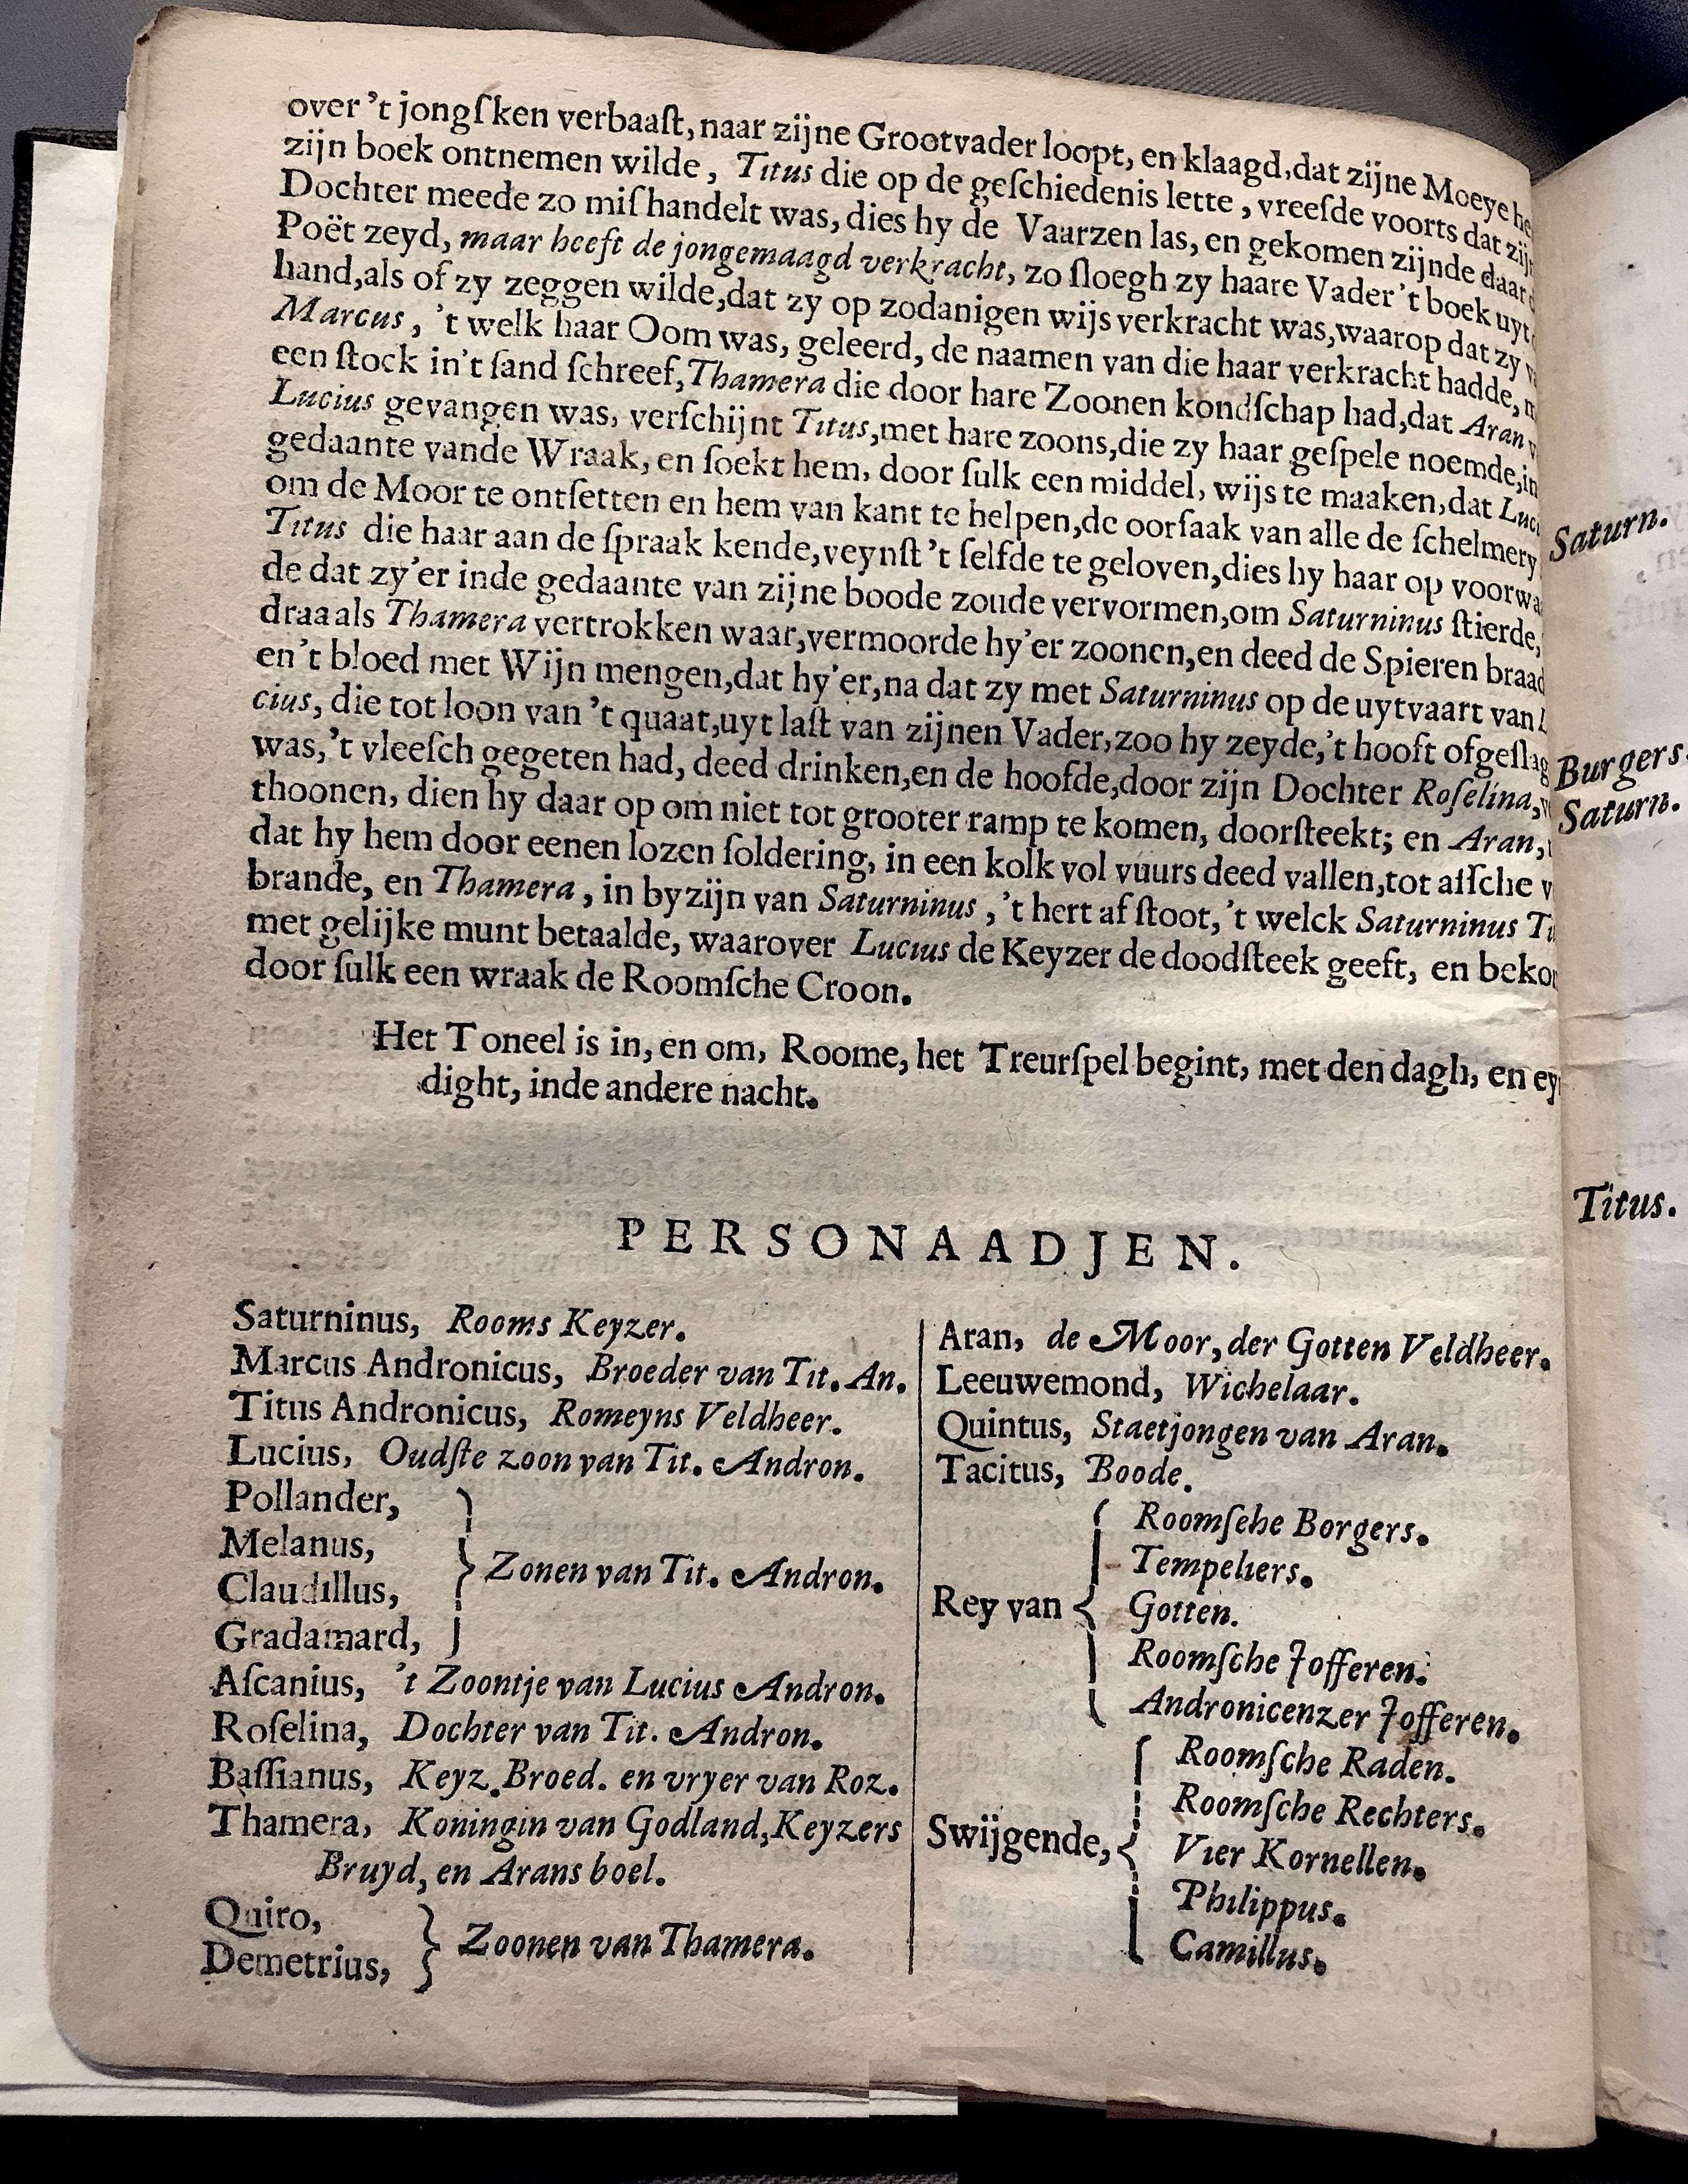 over 't jongſken verbaaſt, naar zijne Grootvader loopt, en klaagd, dat zijne Moeye he
zijn boek ontnemen wilde, Titus die op de geſchiedenis lette, vreeſde voorts dat zij
Dochter meede zo miſhandelt was, dies hy de Vaarzen las, en gekomen zijnde daar
Poët zeyd, maar heeft de jongemaagd verkracht, zo ſloegh zy haare Vader 't boek uyt
hand, als of zy zeggen wilde, dat zy op zodanigen wijs verkracht was, waarop dat zy
Marcus, 't welk haar Oom was, geleerd, de naamen van die haar verkracht hadde,
een ſtock in't ſand ſchreef, Thamera die door hare Zoonen kondſchap had, dat Aran
Lucius gevangen was, verſchijnt Titus, met hare zoons, die zy haar geſpele noemde, in
gedaante vande Wraak, en ſoekt hem, door ſulk een middel, wijs te maaken, dat Luci
om de Moor te ontſetten en hem van kant te helpen, de oorſaak van alle de ſchelmery
Titus die haar aan de ſpraak kende, veynſt 't ſelfde te geloven, dies hy haar op voorwa
de dat zy'er inde gedaante van zijne boode zoude vervormen, om Saturninus ſtierde,
draa als Thamera vertrokken waar, vermoorde hy'er zoonen, en deed de Spieren braad
en't bloed met Wijn mengen, dat hy'er, na dat zy met Saturninus op de uytvaart van L
cius, die tot loon van 't quaat, uyt laſt van zijnen Vader, zoo hy zeyde, 't hooft ofgeſlag
was, 't vleeſch gegeten had, deed drinken, en de hoofde, door zijn Dochter Roſelina,
thoonen, dien hy daar op om niet tot grooter ramp te komen, doorſteekt; en Aran,
dat hy hem door eenen lozen ſoldering, in een kolk vol vuurs deed vallen, tot aſſche v
brande, en Thamera, in byzijn van Saturninus, 't hert af ſtoot, 't welck Saturninus Ti
met gelijke munt betaalde, waarover Lucius de Keyzer de doodſteek geeft, en beko
door ſulk een wraak de Roomſche Croon.
Het Toneel is in, en om, Roome, het Treurſpel begint, met den dagh, en ey
dight, inde andere nacht.
PERSONAADJEN.
Saturninus, Rooms Keyzer.
Marcus Andronicus, Broeder van Tit. An.
Titus Andronicus, Romeyns Veldheer.
Lucius, Oudſte zoon van Tit. Andron.
Pollander,
Melanus,
Claudillus,
Gradamard,
Zonen van Tit. Andron.
Aſcanius, 't Zoontje van Lucius Andron.
Roſelina, Dochter van Tit. Andron.
Baſſianus, Keyz. Broed. en vryer van Roz.
Thamera, Koningin van Godland, Keyzers
Bruyd, en Arans boel.
Quiro,
Demetrius,
Zoonen van Thamera.
Aran, de Moor, der Gotten Veldheer.
Leeuwemond, Wichelaar.
Quintus, Staetjongen van Aran.
Tacitus, Boode.
Rey van
Roomſche Borgers.
Tempeliers.
Gotten.
Roomſche Jofferen.
Andronicenzer Jofferen.
Swijgende,
Roomſche Raden.
Roomſche Rechters.
Vier Kornellen.
Philippus.
Camillus.
Saturn.
Burgers.
Saturn.
Titus.